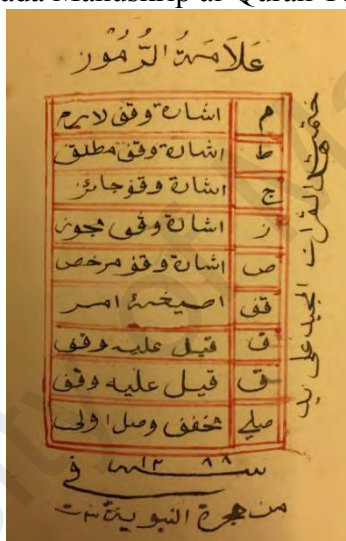 ada Manuskrip al-Quran
علامة الرموز
م اشارة وقف لازم
ط اشارة وقف مطلق
ج اشارة وقف جائز
ز اشارة وقف مجوز
ص اشارة وقف مرخص
قف صيغة امر
ق قيل عليه وقف
ق قيل عليه وقف
صلى مخفف وصل اولى
هذا القرآن المجيد على يد
في سنة ١٢٨٨
من هجرة النبوية